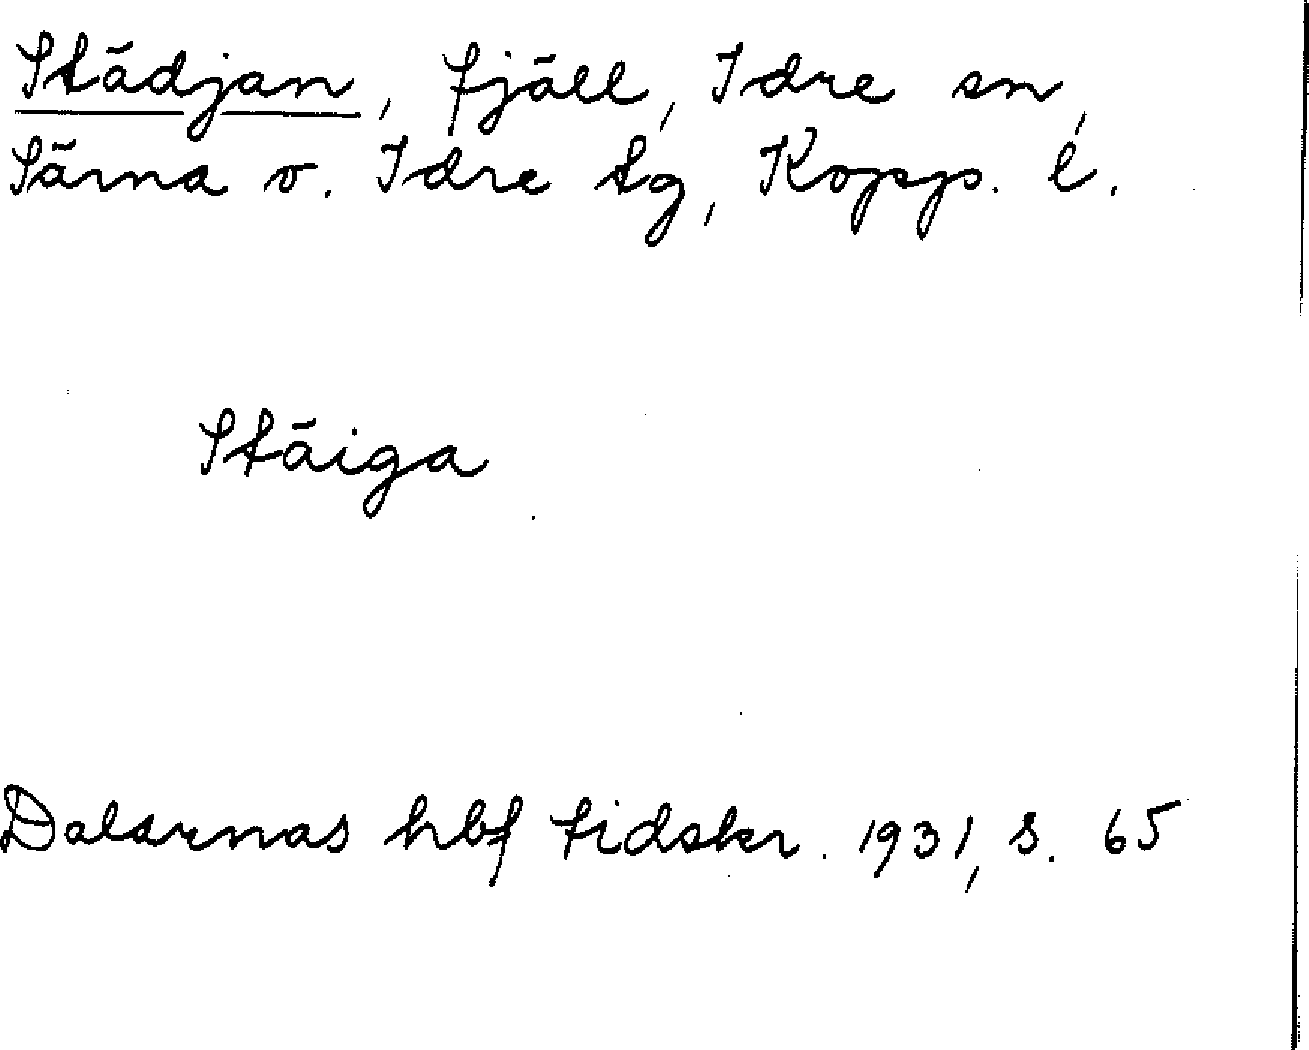 Städjan, fjäll, Idre sn,
Särna o. Idre tg, Kopp. l.
Stäiga
Dalarnas hbf tidskr. 1931, s. 65